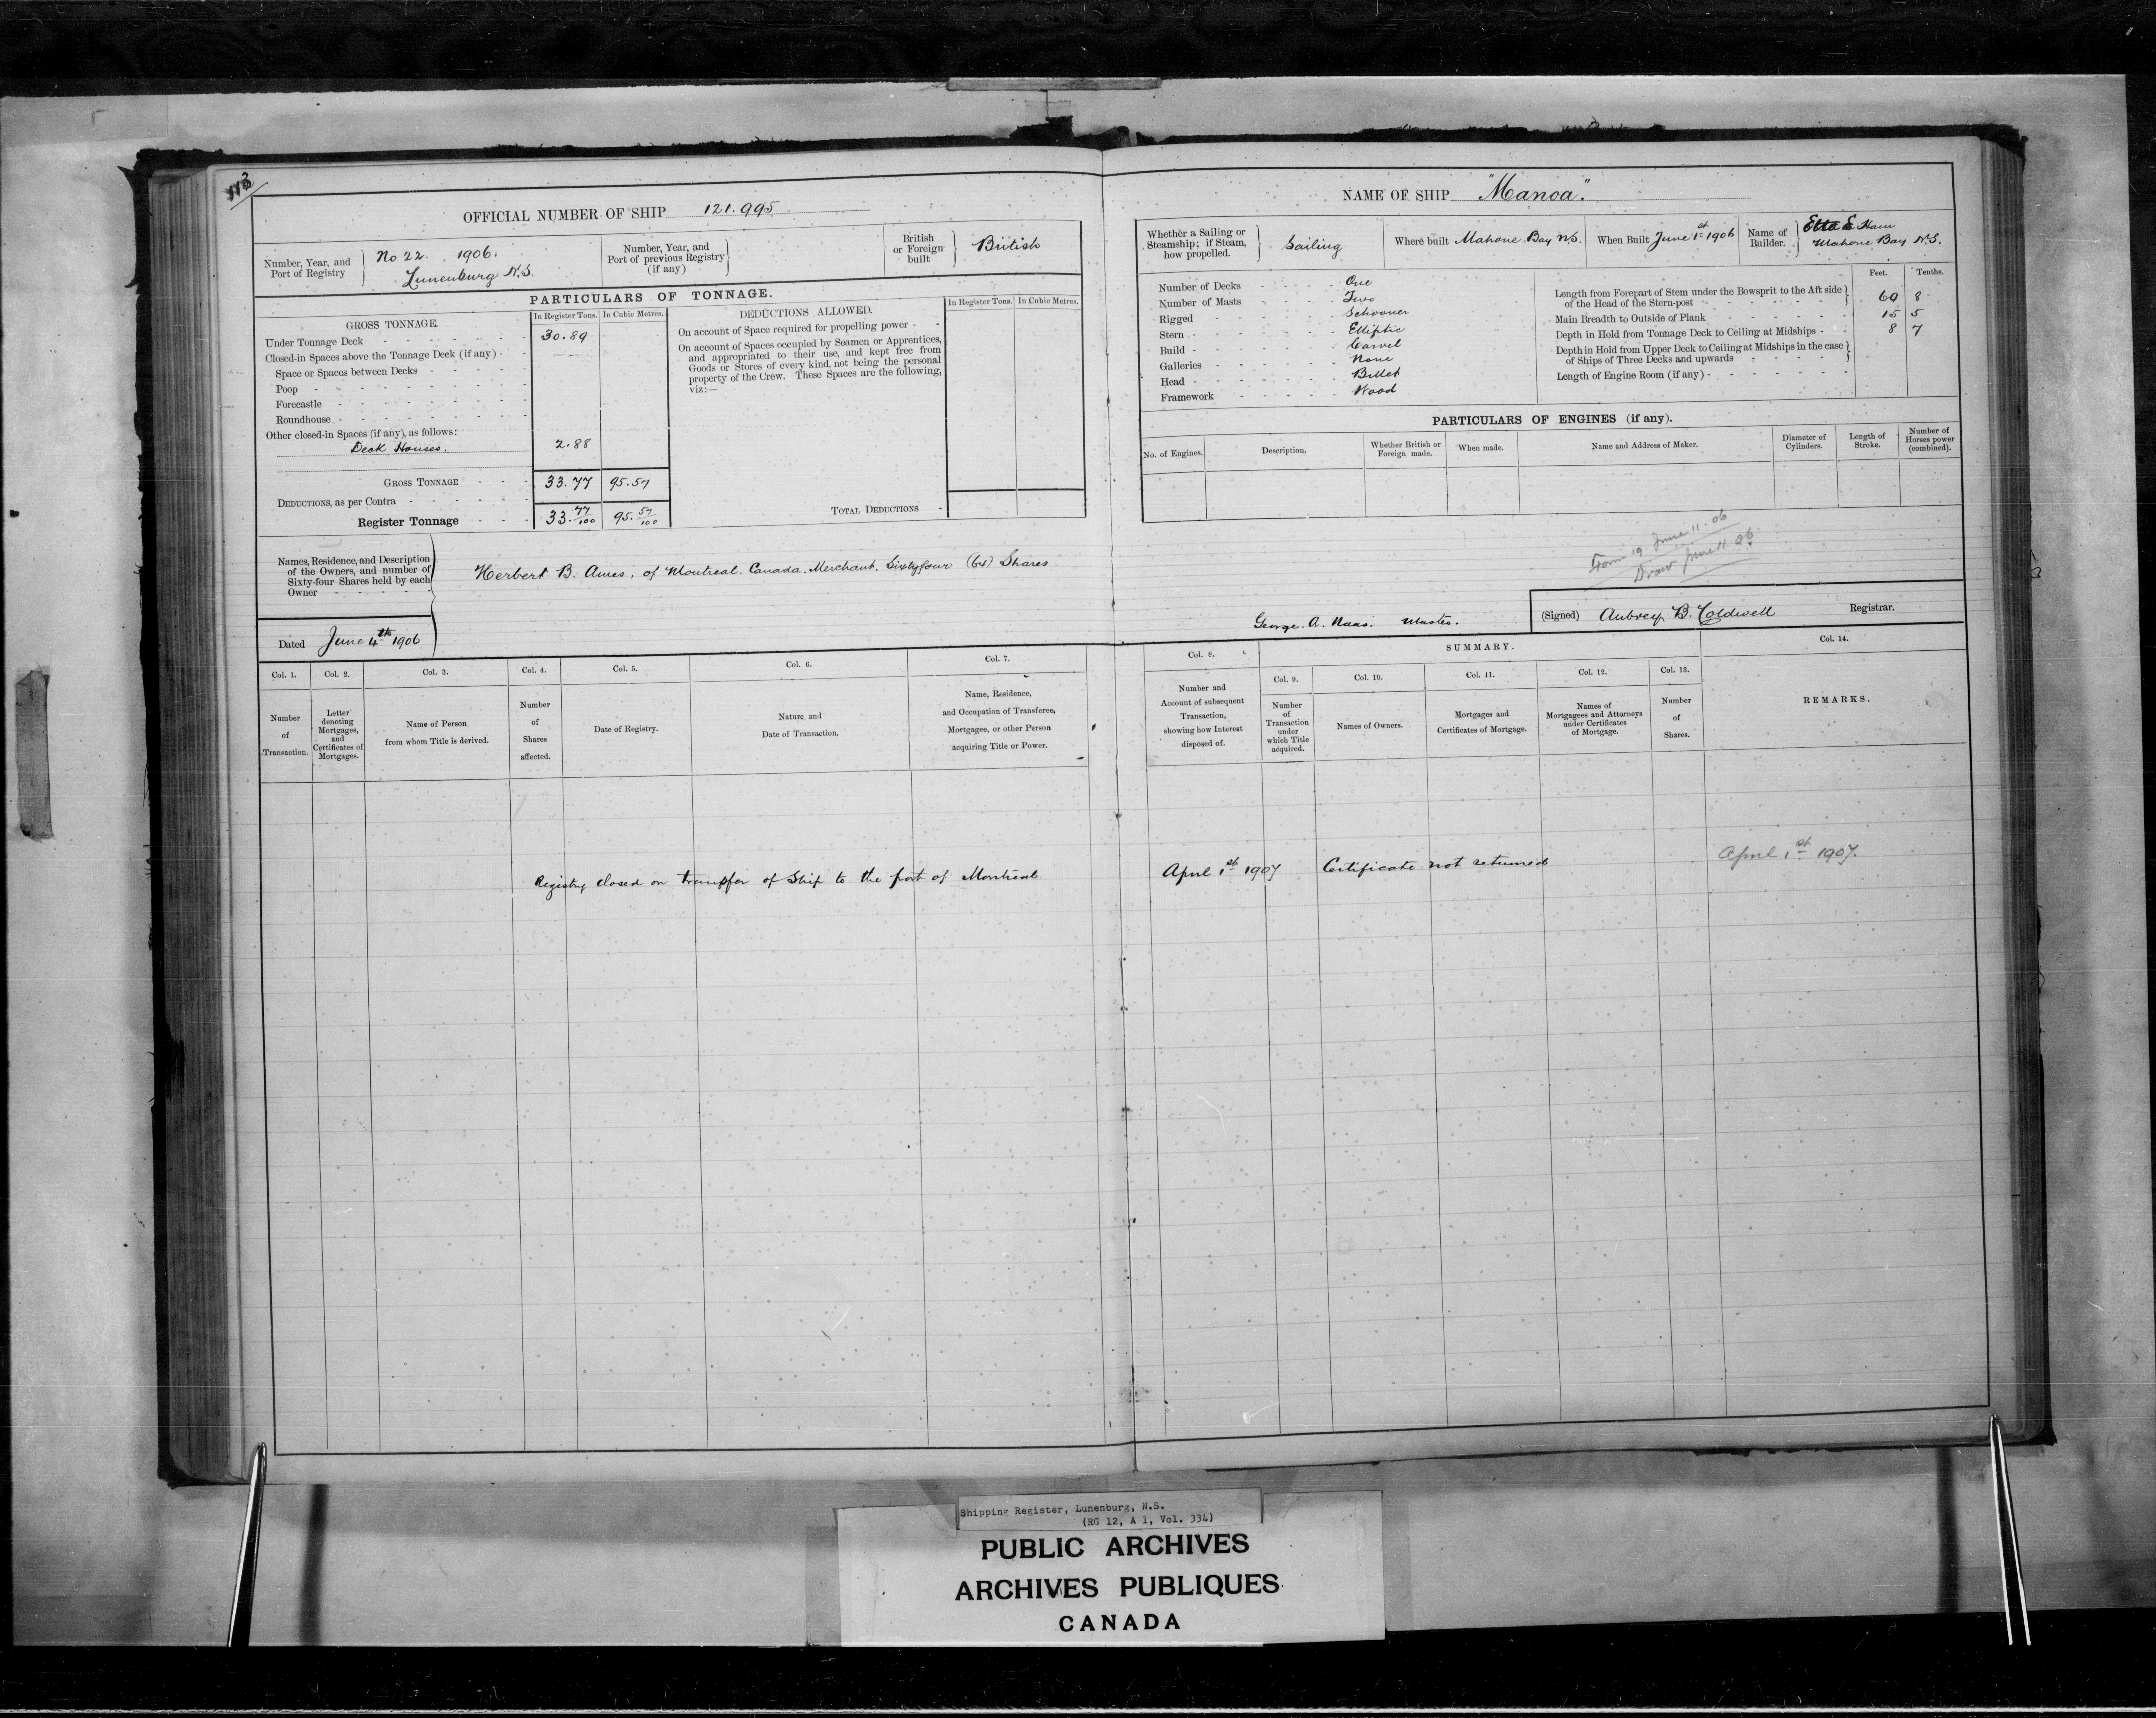 113
OFFICIAL NUMBER OF SHIP 121.995
Number, Year, and Port of Registry } No 22. 1906. Lunenburg N.S.
Number, Year, and Port of previous Registry (if any) }
British or Foreign built } British
PARTICULARS OF TONNAGE.
GROSS TONNAGE.
In Register Tons. In Cubic Metres.
Under Tonnage Deck 30.89
Closed-in Spaces above the Tonnage Deck (if any)
Space or Spaces between Decks
Poop
Forecastle
Roundhouse
Other closed-in Spaces (if any), as follows:
Deck Houses. 2.88
GROSS TONNAGE 33.77 95.57
DEDUCTIONS, as per Contra
Register Tonnage 33.77/100 95.57/100
DEDUCTIONS ALLOWED.
In Register Tons. In Cubic Metres.
On account of Space required for propelling power
On account of Spaces occupied by Seamen or Apprentices,
and appropriated to their use, and kept free from
Goods or Stores of every kind, not being the personal
property of the Crew. These Spaces are the following,
viz:—
TOTAL DEDUCTIONS
Names, Residence, and Description
of the Owners, and number of
Sixty-four Shares held by each
Owner
Herbert B. Ames, of Montreal. Canada. Merchant. Sixtyfour (64) Shares
Dated June 4th 1906
Col. 1. Col. 2. Col. 3. Col. 4. Col. 5. Col. 6. Col. 7.
Number of Transaction.
Letter denoting Mortgages, and Certificates of Mortgages.
Name of Person from whom Title is derived.
Number of Shares affected.
Date of Registry.
Nature and Date of Transaction.
Name, Residence, and Occupation of Transferee, Mortgagee, or other Person acquiring Title or Power.
Registry closed on transfer of Ship to the port of Montreal
NAME OF SHIP "Manoa".
Whether a Sailing or Steamship; if Steam, how propelled. } Sailing
Where built Mahone Bay N.S.
When Built June 1st 1906
Name of Builder. } Etta E Ham
Mahone Bay N.S.
Number of Decks One
Number of Masts Two
Rigged Schooner
Stern Elliptic
Build Carvel
Galleries None
Head Billet
Framework Wood
Feet. Tenths.
Length from Forepart of Stem under the Bowsprit to the Aft side
of the Head of the Stern-post 60 8
Main Breadth to Outside of Plank 15 5
Depth in Hold from Tonnage Deck to Ceiling at Midships 8 7
Depth in Hold from Upper Deck to Ceiling at Midships in the case
of Ships of Three Decks and upwards
Length of Engine Room (if any)
PARTICULARS OF ENGINES (if any).
No. of Engines.
Description.
Whether British or Foreign made.
When made.
Name and Address of Maker.
Diameter of Cylinders.
Length of Stroke.
Number of Horses power (combined).
Form 19 June 11.06
Draw June 11.06
George. A. Naas. Master.
(Signed) Aubrey B. Coldwell Registrar.
Col. 8. SUMMARY. Col. 14.
Col. 9. Col. 10. Col. 11. Col. 12. Col. 13.
Number and Account of subsequent Transaction, showing how Interest disposed of.
Number of Transaction under which Title acquired.
Names of Owners.
Mortgages and Certificates of Mortgage.
Names of Mortgagees and Attorneys under Certificates of Mortgage.
Number of Shares.
REMARKS.
April 1st 1907.
April 1st 1907 Certificate not returned
Shipping Register, Lunenburg, N.S.
(RG 12, A 1, Vol. 334)
PUBLIC ARCHIVES
ARCHIVES PUBLIQUES
CANADA